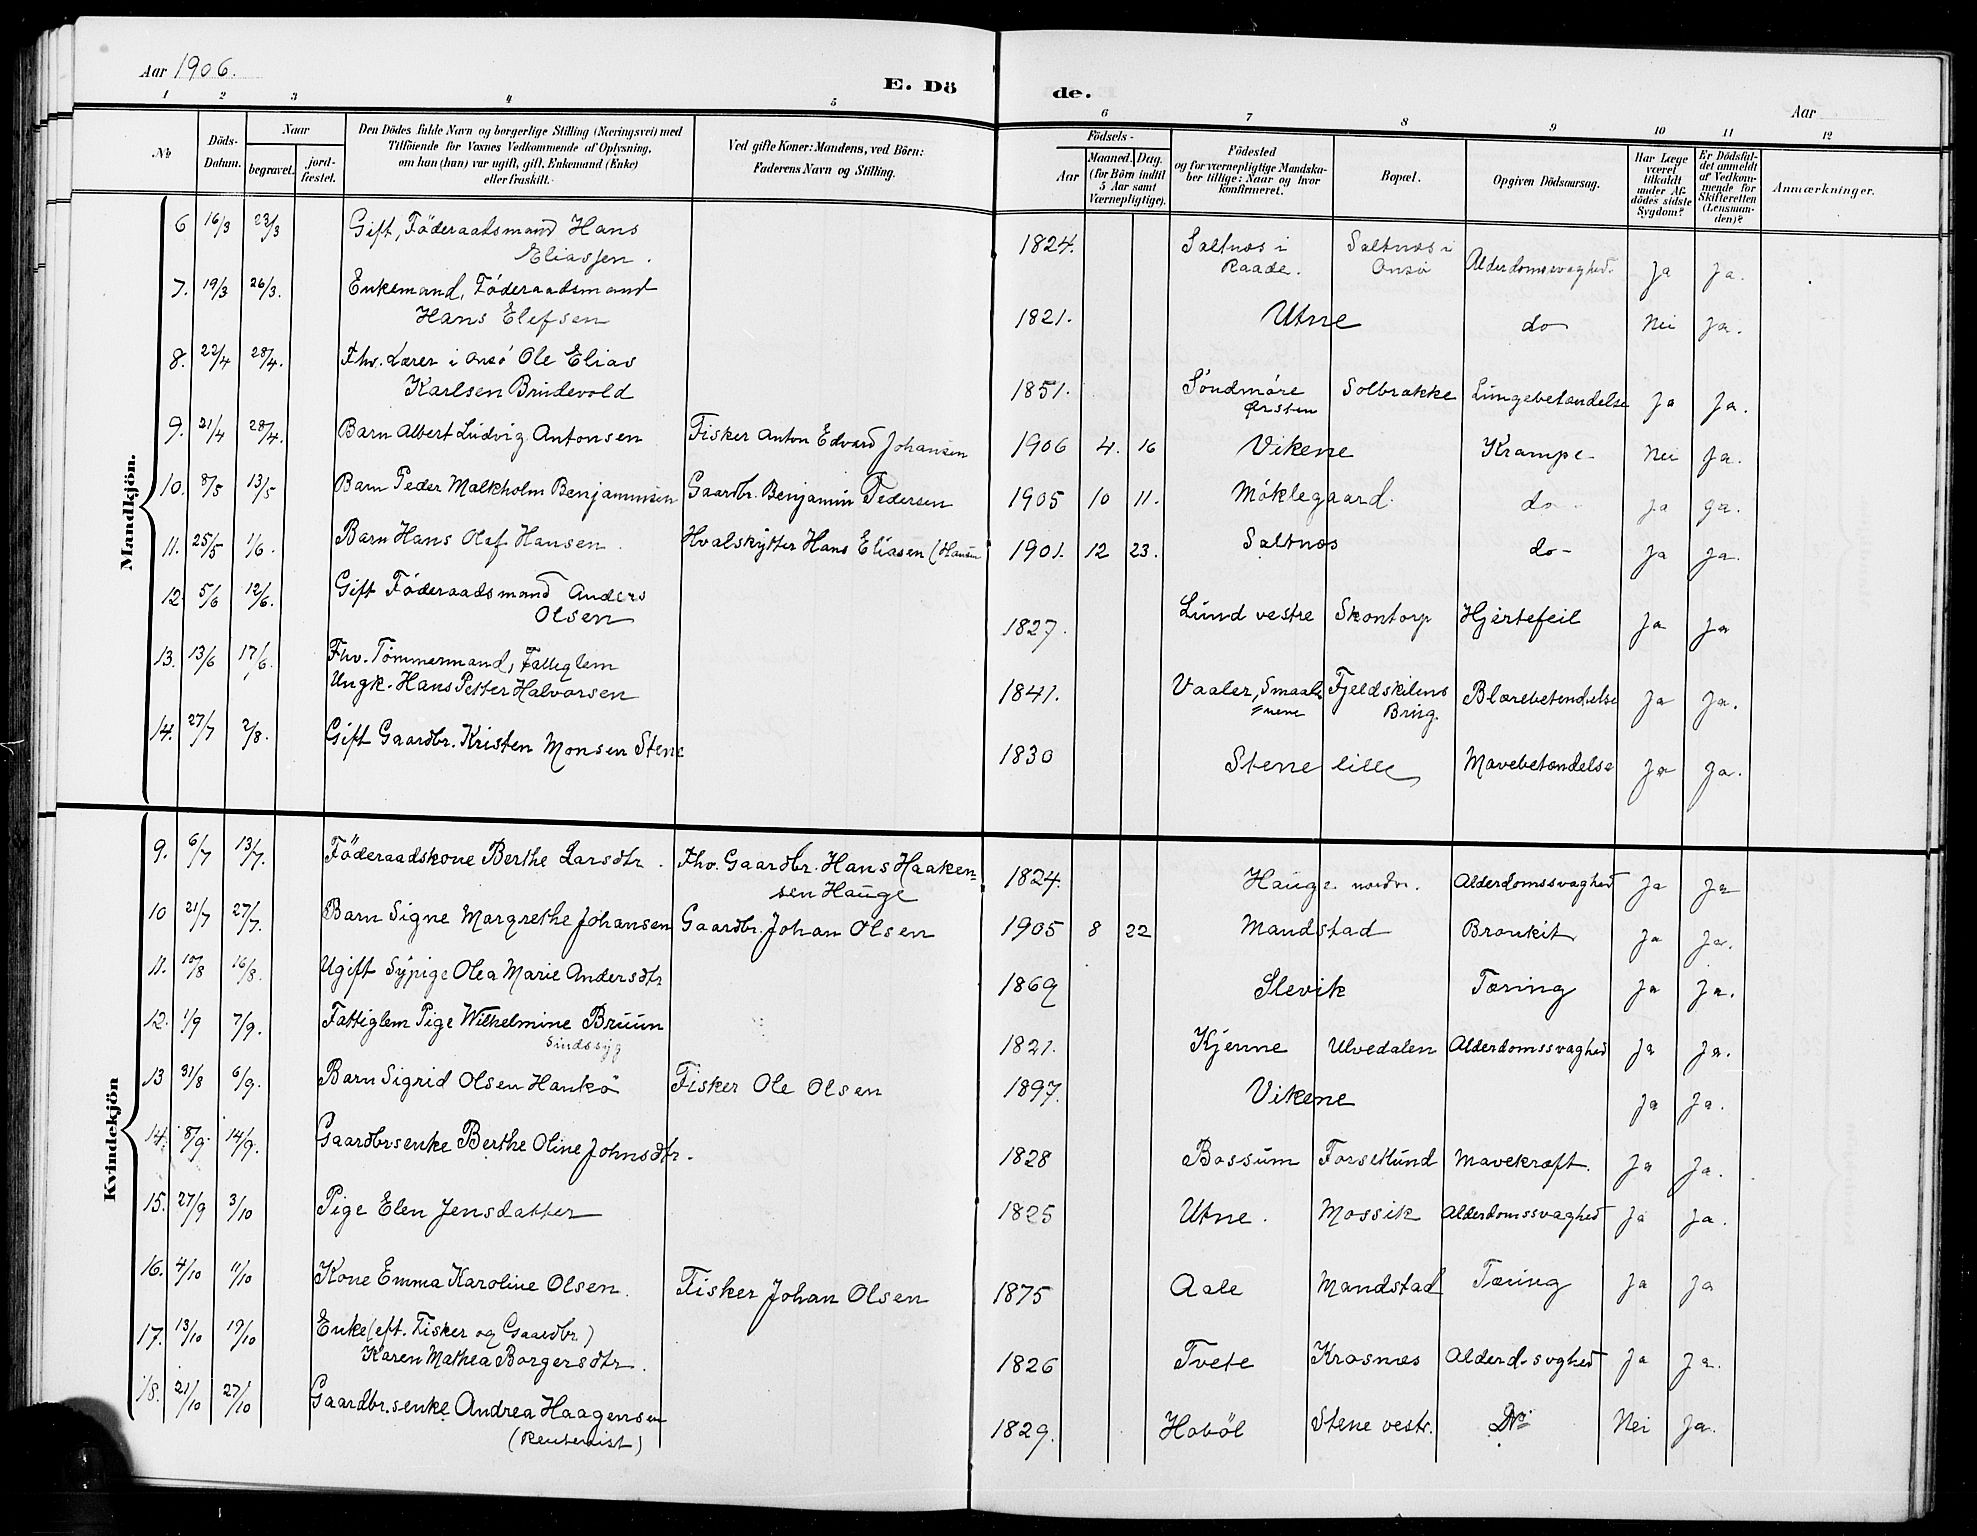 Aar 1906.
E. Dö de.
Aar
1 2 3 4 5 6 7 8 9 10 11 12
№ Döds-Datum. Naar begravet. jord-fæstet. Den Dödes fulde Navn og borgerlige Stilling (Næringsvei) med Tilföiende for Voxnes Vedkommende af Oplysning, om hun (han) var ugift, gift, Enkemand (Enke) eller fraskilt. Ved gifte Koner: Mandens, ved Börn: Faderens Navn og Stilling. Födsels- Aar Maaned. Dag. (for Börn indtil 5 Aar samt Værnepligtige). Födested og for værnepligtige Mandskaber tillige: Naar og hvor konfirmeret. Bopæl. Opgiven Dödsaarsag. Har Læge været tilkaldt under Afdödes sidste Sygdom? Er Dödsfaldet anmeldt af Vedkommende for Skifteretten (Lensmanden)? Anmærkninger.
Mandkjön.
6 16/3 23/3 Gift, Föderaadsmand Hans Eliassen. 1824. Saltnæs i Raade. Saltnæs i Onsö Alderdomssvaghed. Ja Ja.
7. 19/3 26/3. Enkemand, Föderaadsmand Hans Elefsen 1821. Utne do Nei Ja.
8. 22/4 28/4. Fhv. Lærer i Onsö Ole Elias Karlsen Brudevold 1851. Söndmöre Ørsten Solbrække Lungebetændelse Ja Ja.
9. 21/4 28/4. Barn Albert Ludvig Antonsen Fisker Anton Edvard Johansen 1906 4. 16 Vikene Krampe Nei Ja.
10. 8/5 13/5 Barn Peder Malkholm Benjaminsen Gaardbr. Benjamin Pedersen 1905 10 11. Möklegaard. do Ja Ja.
11. 25/5 1/6. Barn Hans Olaf Hansen. Hvalskytter Hans Eliasen (Hansen 1901. 12 23. Saltnæs do- Ja Ja.
12. 5/6 12/6. Gift Föderaadsmand Anders Olsen 1827. Lund vestre Skontorp Hjertefeil Ja Ja
13. 13/6 17/6. Fhv. Tömmermand, Fattiglem Ungk. Hans Petter Halvorsen 1841. Vaaler, Smaale=nene Fjeldskilens Brug. Blærebetændelse Ja Ja.
14. 27/7 2/8. Gift Gaardbr. Kristen Monsen Stene 1830 Stene lille Mavebetændelse Ja Ja.
Kvindekjön
9. 6/7 13/7. Föderaadskone Berthe Larsdtr. Fhv. Gaardbr. Hans Haaken=sen Hauge 1824. Hauge nordr. Alderdomssvaghed Ja Ja
10 21/7 27/7. Barn Signe Margrethe Johansen Gaardbr. Johan Olsen 1905 8 22 Mandstad Bronkit Ja Ja.
11. 10/8 16/8. Ugift Sypige Olea Marie Andersdtr 1869 Slevik Tæring Ja Ja.
12. 1/9 7/9. Fattiglem Pige Wilhelmine Bruun Sindssyg 1821. Kjenne Ulvedalen Alderdomssvaghed Ja Ja.
13 31/8 6/9. Barn Sigrid Olsen Hankö Fisker Ole Olsen 1897. Vikene Ja Ja.
14. 8/9 14/9. Gaardbrsenke Berthe Oline Johnsdtr. 1828 Bossum Forsetlund Mavekræft. Ja Ja.
15. 27/9 3/10 Pige Elen Jensdatter 1825 Utne. Mossik Alderdomssvaghed Ja Ja.
16. 4/10 11/10 Kone Emma Karoline Olsen. Fisker Johan Olsen 1875 Aale Mandstad Tæring Ja Ja
17. 13/10 19/10 Enke (eft. Fisker og Gaardbr.) Karen Mathea Borgersdtr. 1826 Tvete Krosnæs Alderd.svaghed Ja Ja.
18. 21/10 27/10 Gaardbr.senke Andrea Haagensen (Rentenist) 1829. Hoböl Stene vestr. Do Nei Ja.